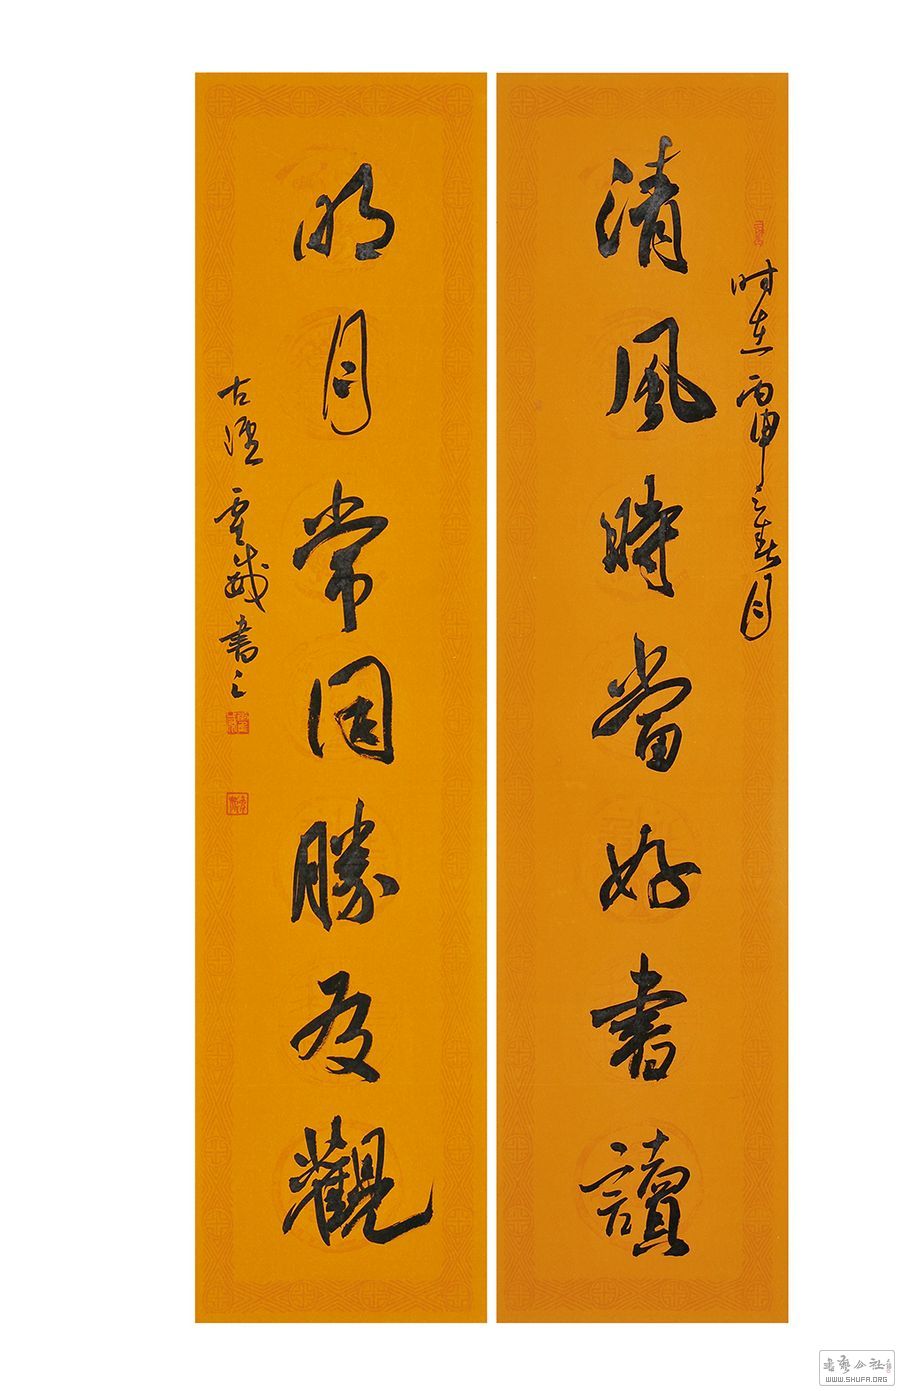 清風時當好書讀
时在丙申之春月
明月常因勝友觀
書之
書藝公社
WWW.SHUFA.ORG